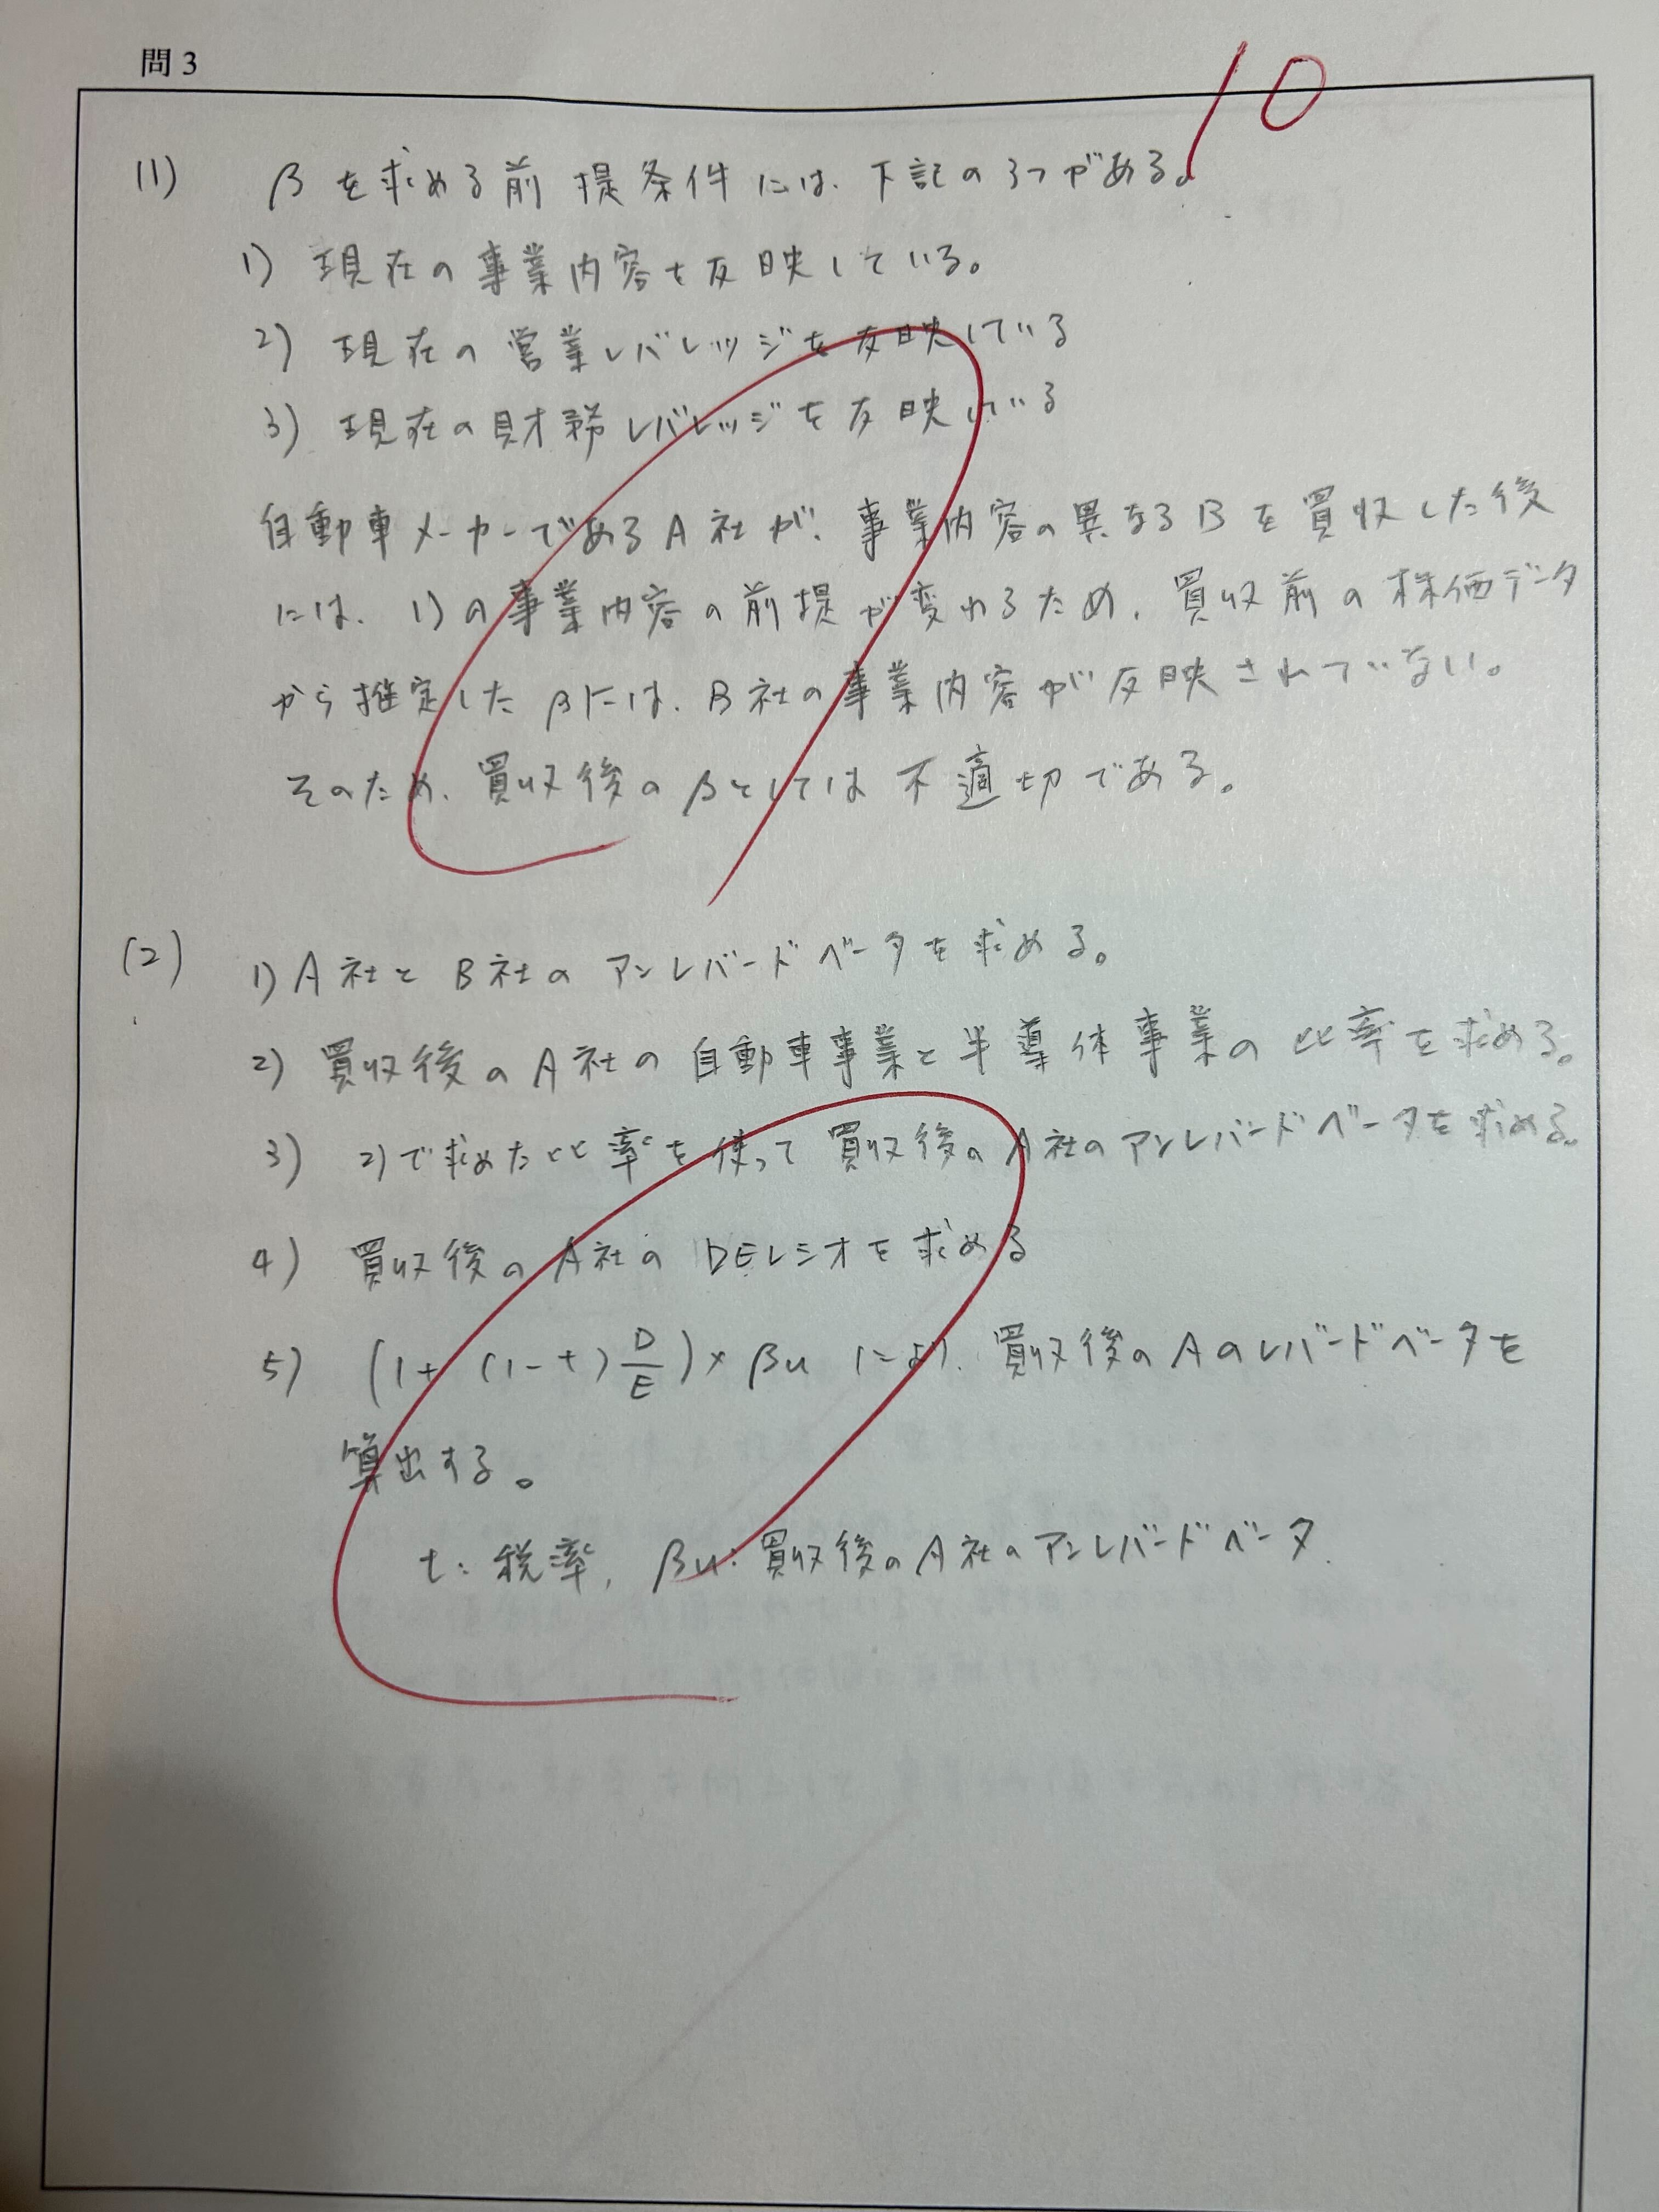 問3
10
(1) βを求める前提条件には、下記の3つがある。
1) 現在の事業内容を反映している。
2) 現在の営業レバレッジを反映している
3) 現在の財務レバレッジを反映している
自動車メーカーであるA社が、事業内容の異なるBを買収した後
には、1)の事業内容の前提が変わるため、買収前の株価データ
から推定したβには、B社の事業内容が反映されていない。
そのため、買収後のβとしては不適切である。
(2) 1) A社とB社のアンレバードベータを求める。
2) 買収後のA社の自動車事業と半導体事業の比率を求める。
3) 2)で求めた比率を使って買収後のA社のアンレバードベータを求める。
4) 買収後のA社のDEレシオを求める
5) (1+(1-t)D/E)×βu により、買収後のAのレバードベータを
算出する。
t:税率, βu:買収後のA社のアンレバードベータ.